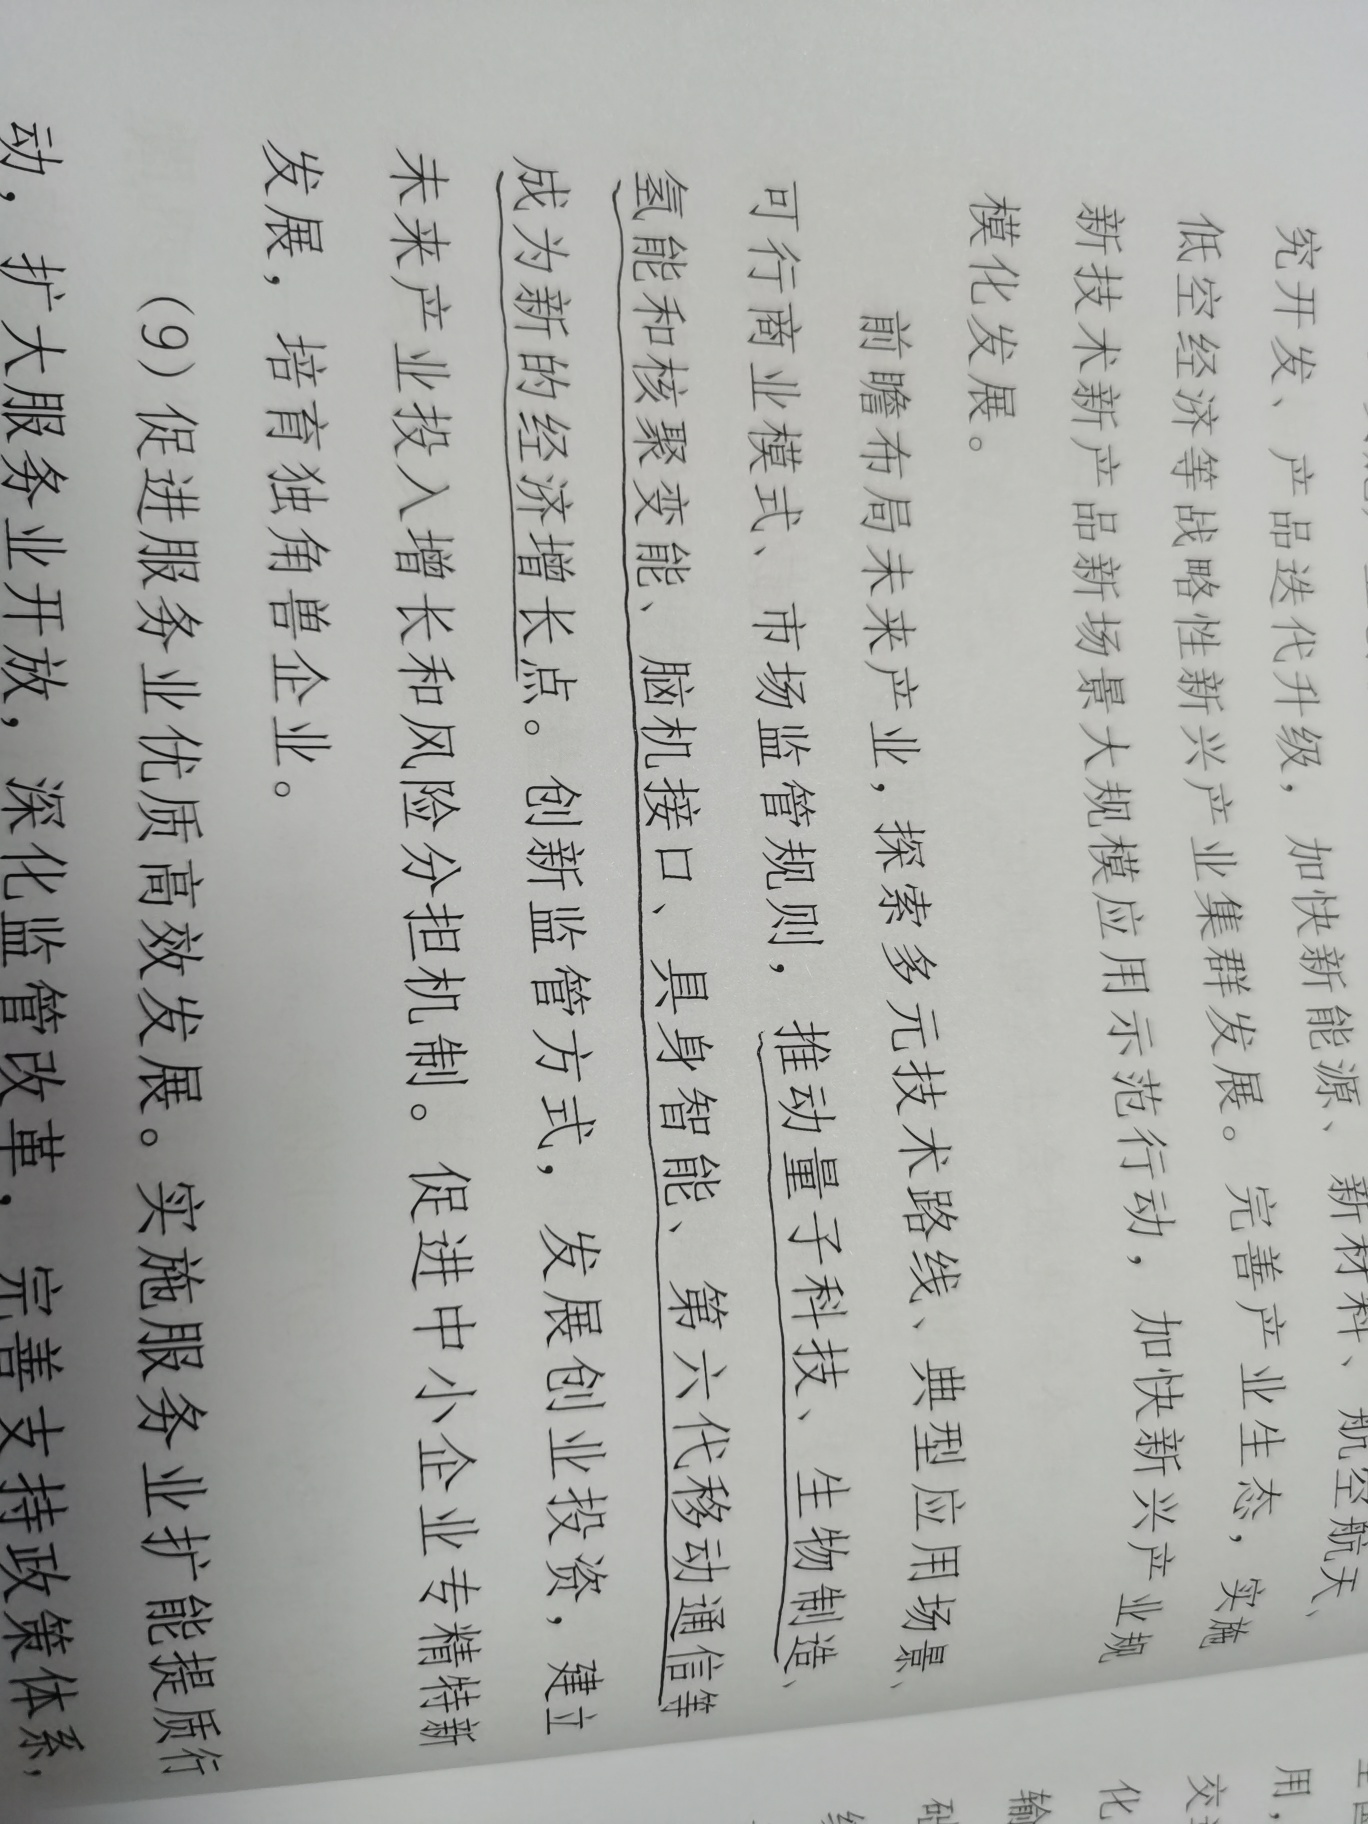 究开发、产品迭代升级，加快新能源、新材料、航空航天、
低空经济等战略性新兴产业集群发展。完善产业生态，实施
新技术新产品新场景大规模应用示范行动，加快新兴产业规
模化发展。
前瞻布局未来产业，探索多元技术路线、典型应用场景、
可行商业模式、市场监管规则，推动量子科技、生物制造、
氢能和核聚变能、脑机接口、具身智能、第六代移动通信等
成为新的经济增长点。创新监管方式，发展创业投资，建立
未来产业投入增长和风险分担机制。促进中小企业专精特新
发展，培育独角兽企业。
（9）促进服务业优质高效发展。实施服务业扩能提质行
动，扩大服务业开放，深化监管改革，完善支持政策体系，
用，
交
化
输
础